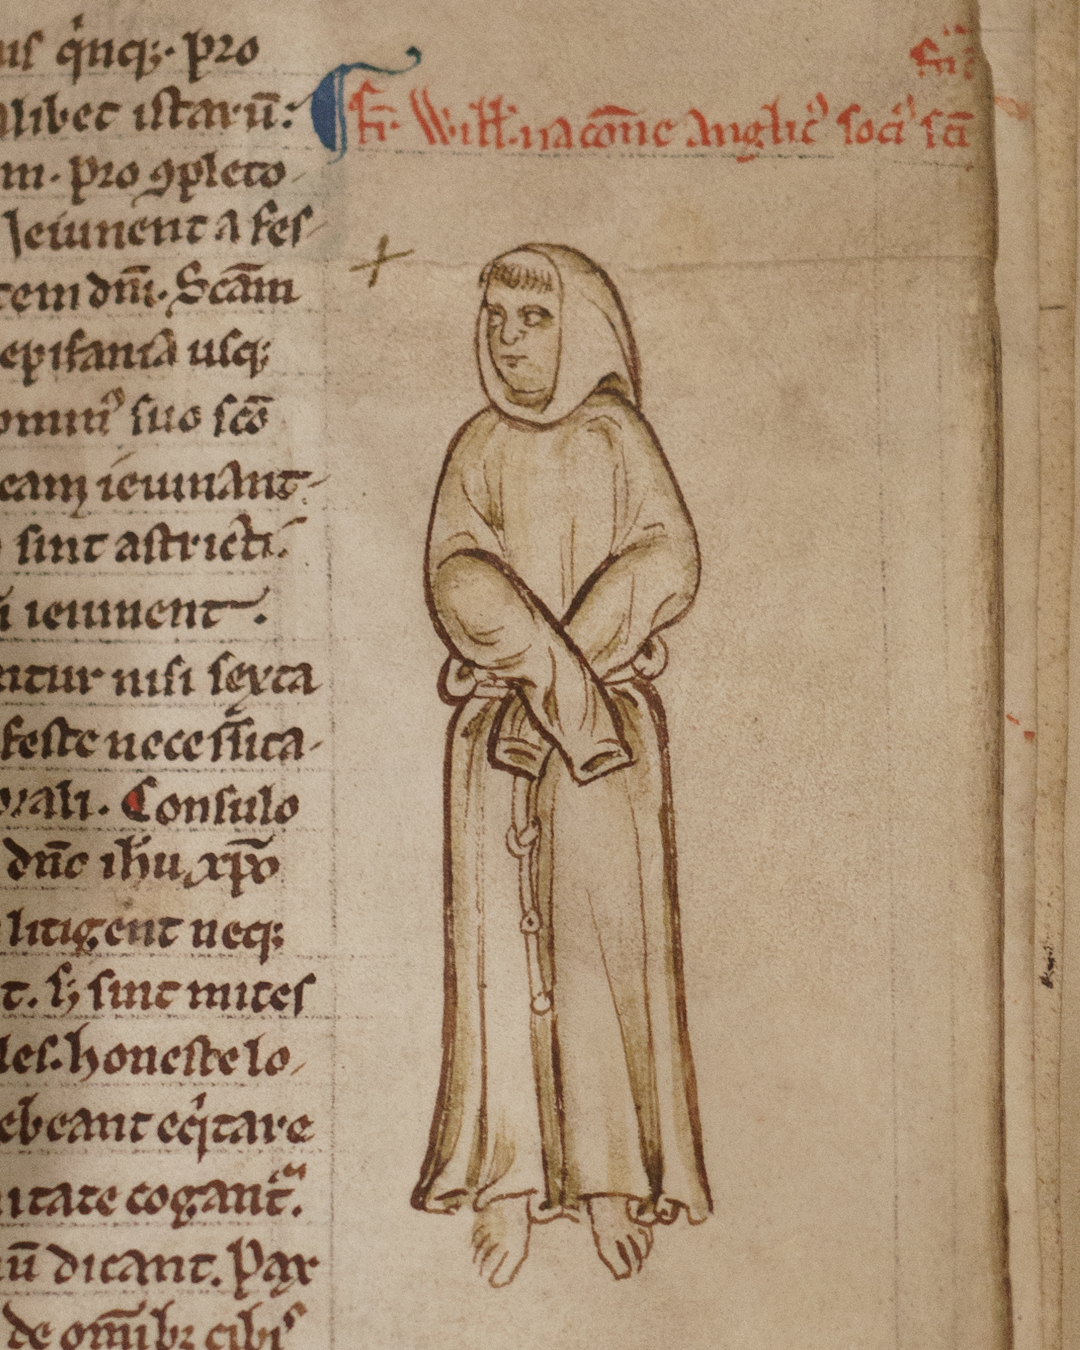 us qinq;· pro
alibet istarū:
m· pro ꝯpleto
Jeiunent a fes-
tem dn̄i. Sc̄am
epifania usq;
suo sc̄o
eam ieiunant-
sint astricti.
ieiunent.
ntur nisi sexta
feste necessita-
orali. Consulo
dn̄o ih̄u xp̄o
litigent neq;
t. s; sint mites
les. honeste lo-
ebeant eqitare
itate cogant᷑.
ū dicant. Pax
de om̄ibꝫ cibis
¶ Fr̄. Will's. nacōne anglic' soci' sc̄i